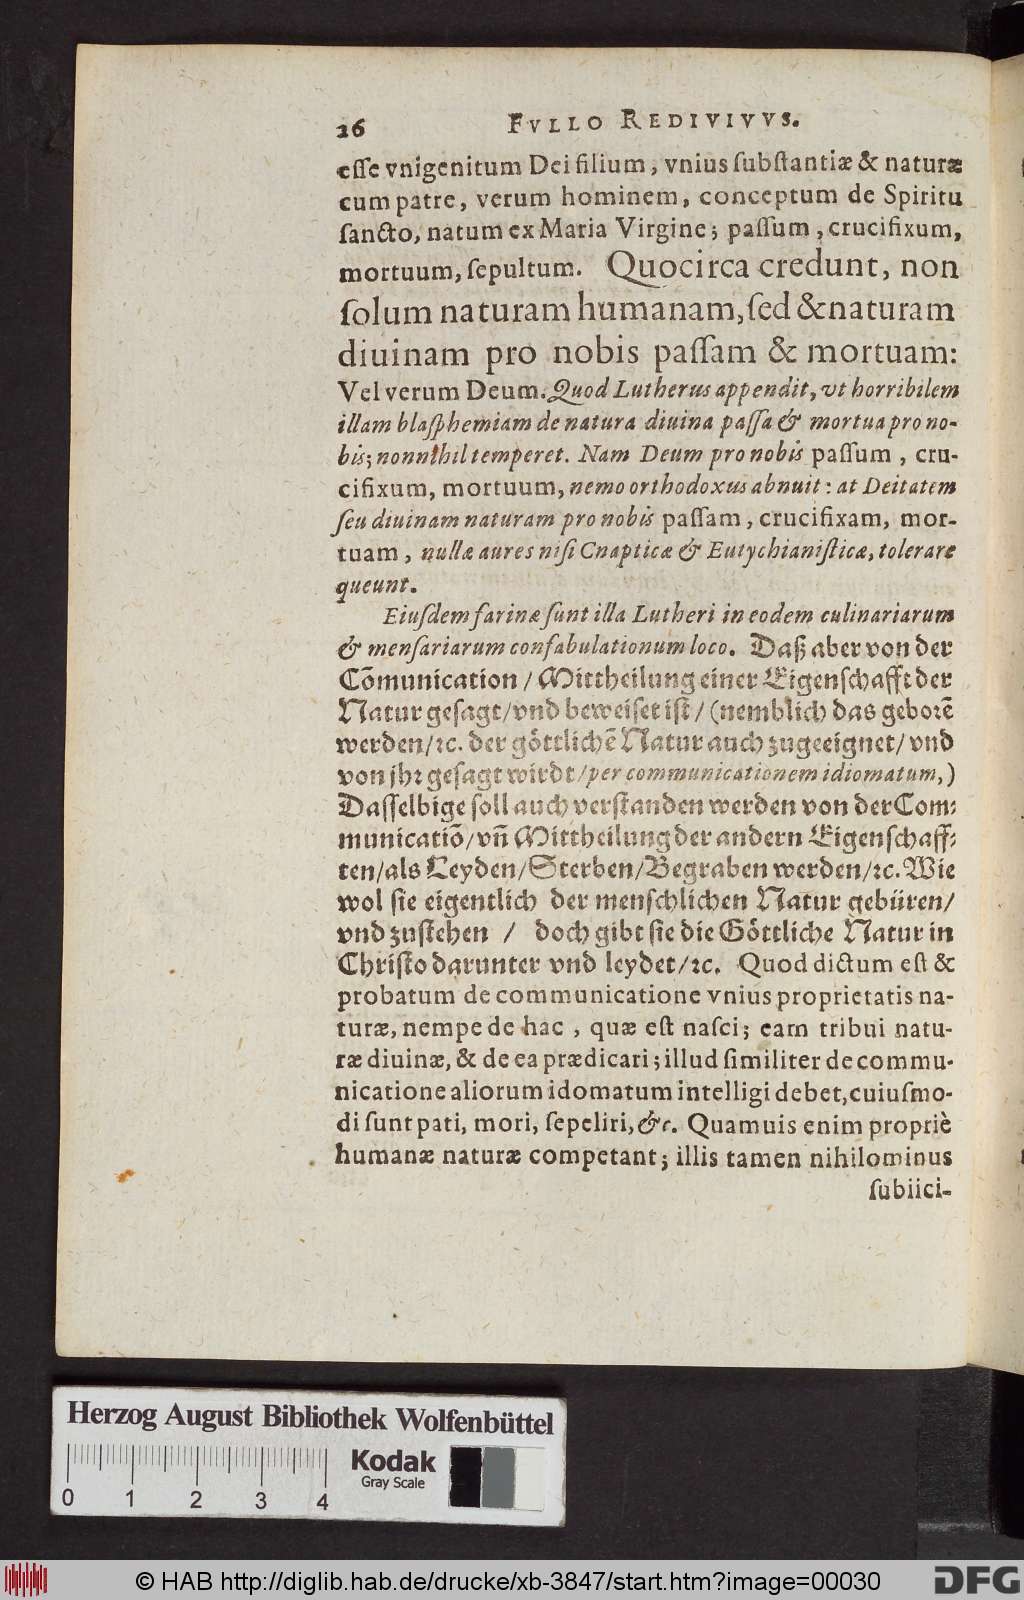 26 FVLLO REDIVIVVS.
eſſe vnigenitum Dei filium, vnius ſubſtantiæ & naturæ
cum patre, verum hominem, conceptum de Spiritu
ſancto, natum ex Maria Virgine; paſſum, crucifixum,
mortuum, ſepultum. Quocirca credunt, non
ſolum naturam humanam, ſed & naturam
diuinam pro nobis paſſam & mortuam:
Vel verum Deum. Quod Lutherus appendit, vt horribilem
illam blaſphemiam de natura diuina paſſa & mortua pro no-
bis; nonnihil temperet. Nam Deum pro nobis paſſum, cru-
cifixum, mortuum, nemo orthodoxus abnuit: at Deitatem
ſeu diuinam naturam pro nobis paſſam, crucifixam, mor-
tuam, nullæ aures niſi Cnapticæ & Eutychianiſticæ, tolerare
queunt.
Eiuſdem farinæ ſunt illa Lutheri in eodem culinariarum
& menſariarum confabulationum loco. Daß aber von der
Com̃unication / Mittheilung einer Eigenſchafft der
Natur geſagt / vnd beweiſet iſt / (nemblich das geborẽ
werden / ꝛc. der göttlichẽ Natur auch zugeeignet / vnd
von jhꝛ geſagt wirdt / per communicationem idiomatum,)
Daſſelbige ſoll auch verſtanden werden von der Com⸗
municatiõ / vñ Mittheilung der andern Eigenſchaff⸗
ten / als Leyden / Sterben / Begraben werden / ꝛc. Wie
wol ſie eigentlich der menſchlichen Natur gebüren /
vnd zuſtehen / doch gibt ſie die Göttliche Natur in
Chriſto darunter vnd leydet / ꝛc. Quod dictum eſt &
probatum de communicatione vnius proprietatis na-
turæ, nempe de hac, quæ eſt naſci; eam tribui natu-
ræ diuinæ, & de ea prædicari; illud ſimiliter de commu-
nicatione aliorum idomatum intelligi debet, cuiuſmo-
di ſunt pati, mori, ſepeliri, &c. Quamuis enim propriè
humanæ naturæ competant; illis tamen nihilominus
ſubiici-
Herzog August Bibliothek Wolfenbüttel
Kodak
Gray Scale
0 1 2 3 4
© HAB http://diglib.hab.de/drucke/xb-3847/start.htm?image=00030
DFG